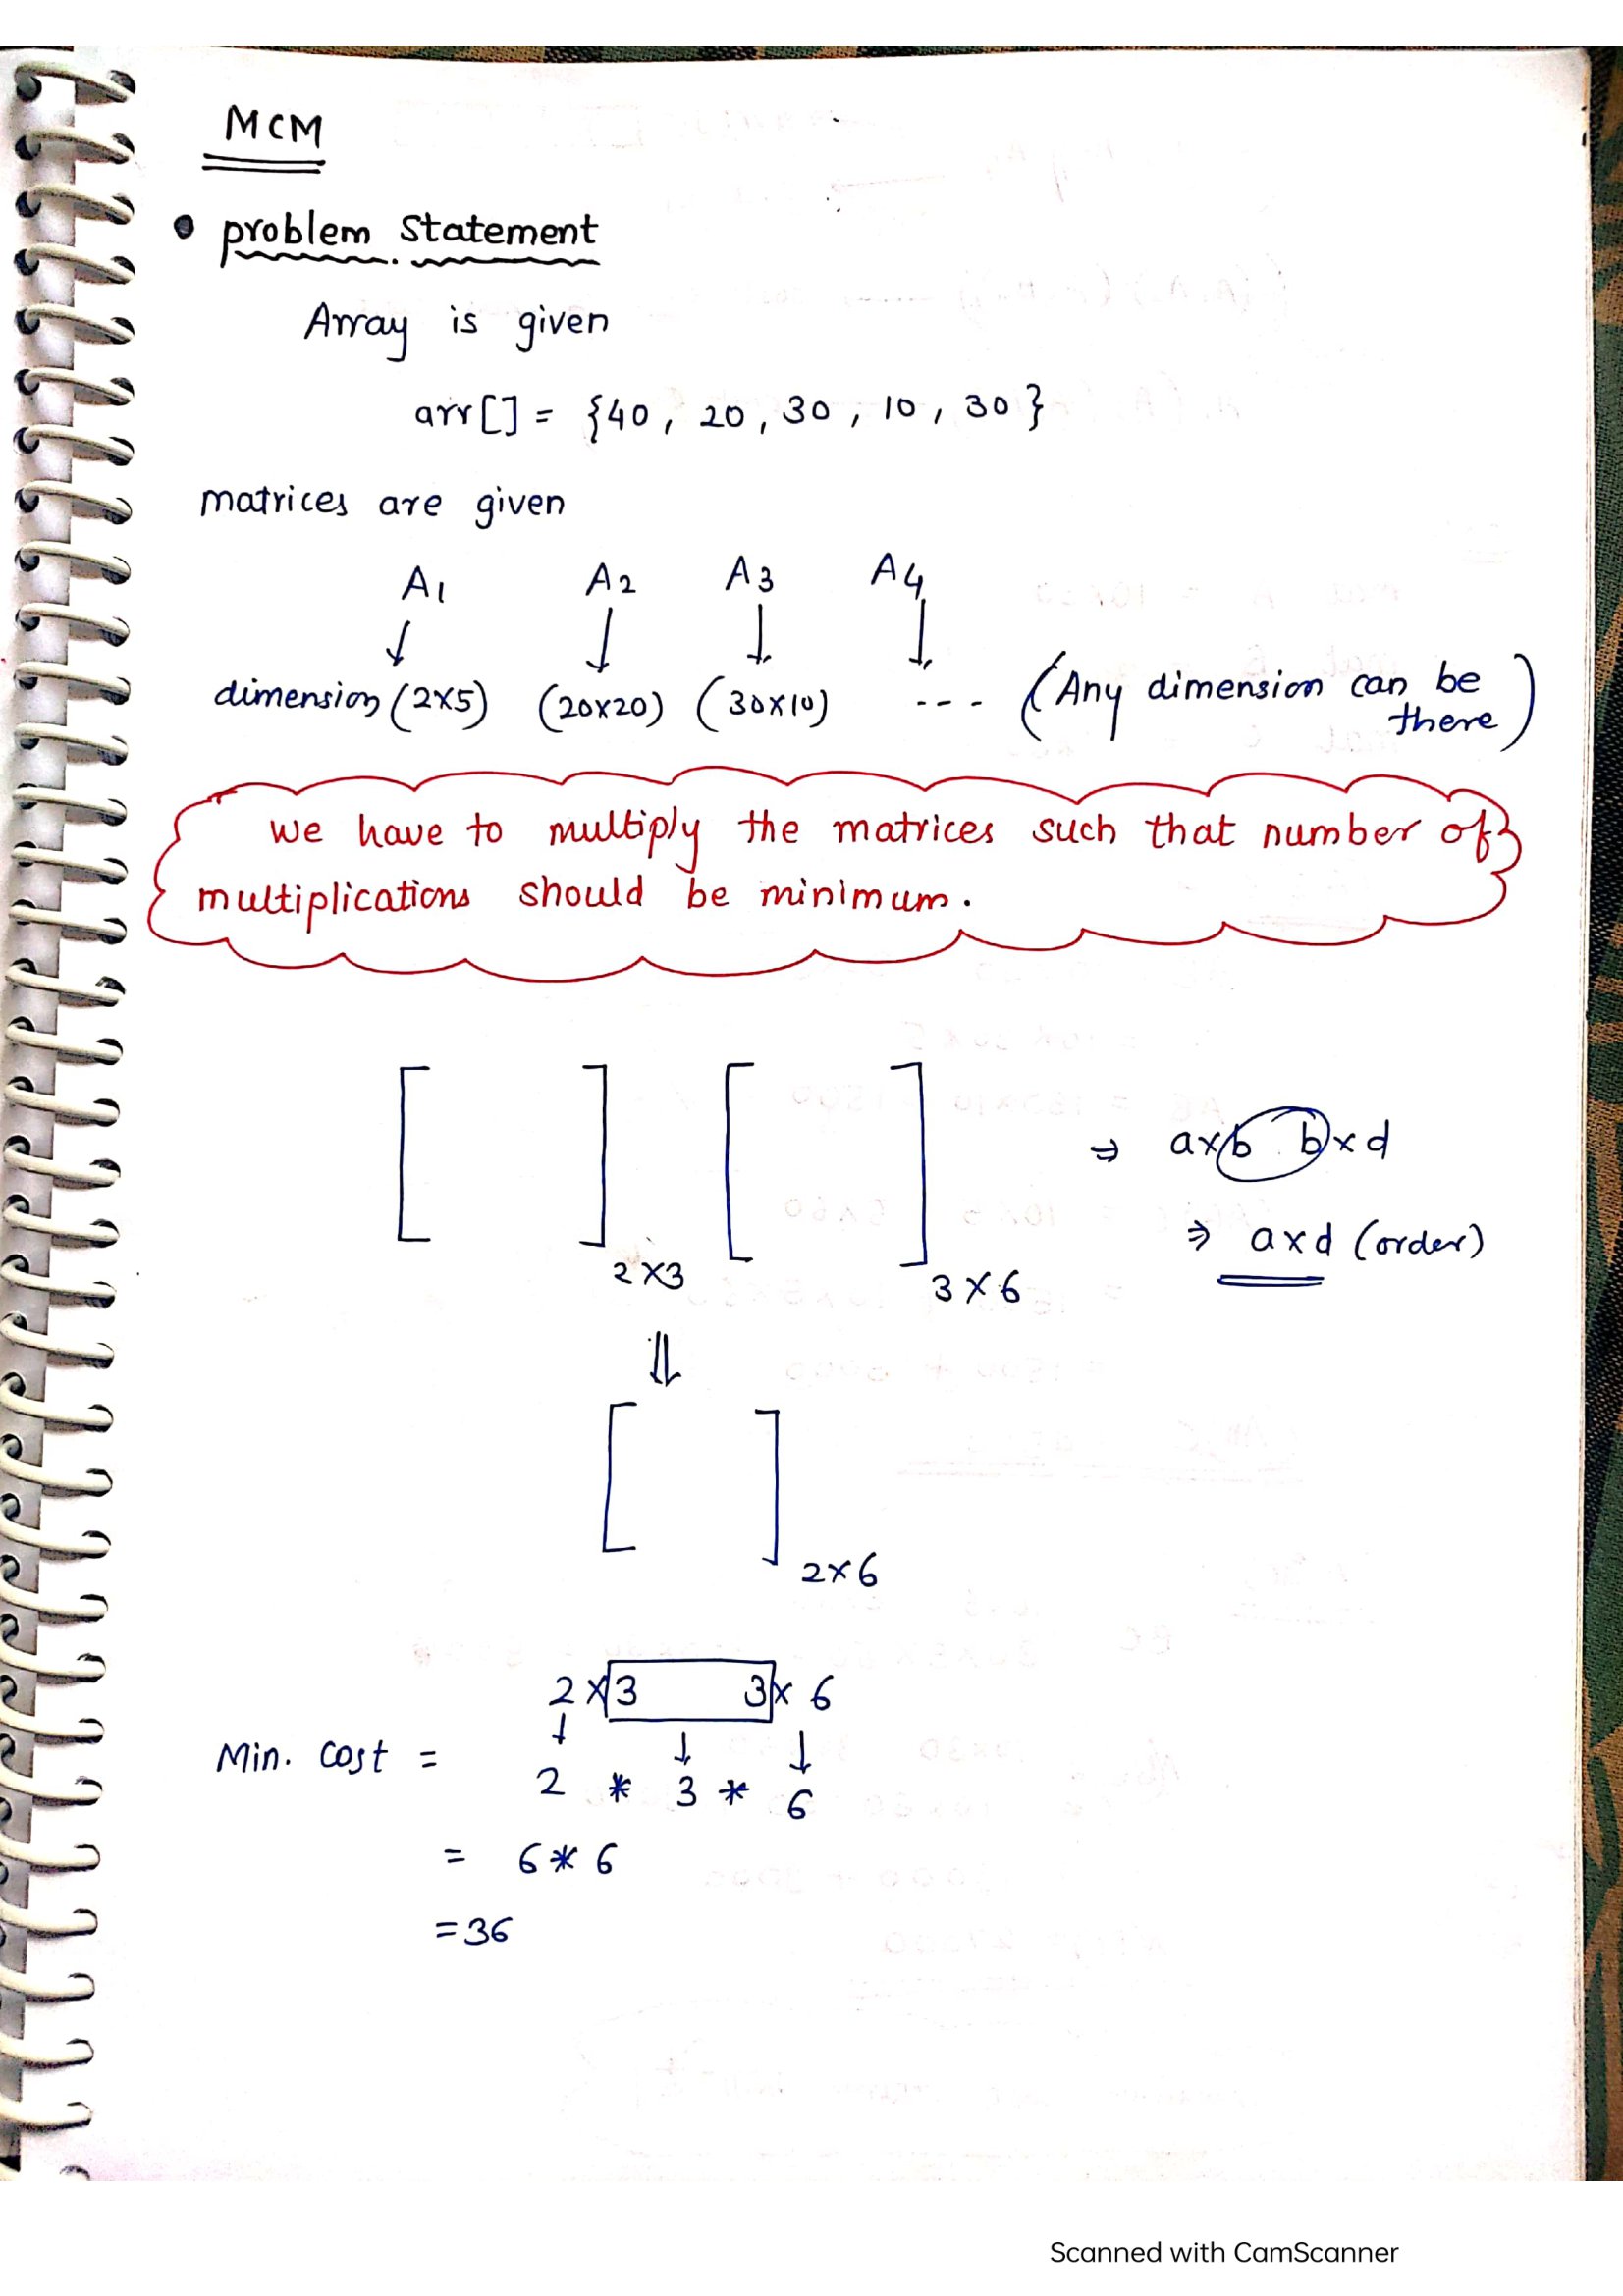 MCM
• problem statement
Array is given
arr[] = {40, 20, 30, 10, 30}
matrices are given
A1 A2 A3 A4
↓ ↓ ↓ ↓
dimension (2x5) (20x20) (30x10) --- (Any dimension can be there)
we have to multiply the matrices such that number of
multiplications should be minimum.
[ ]2x3 [ ]3x6 ⇒ axb bxd
⇒ axd (order)
⇓
[ ]2x6
2x3 3x6
↓ ↓ ↓
Min. cost = 2 * 3 * 6
= 6 * 6
= 36
Scanned with CamScanner